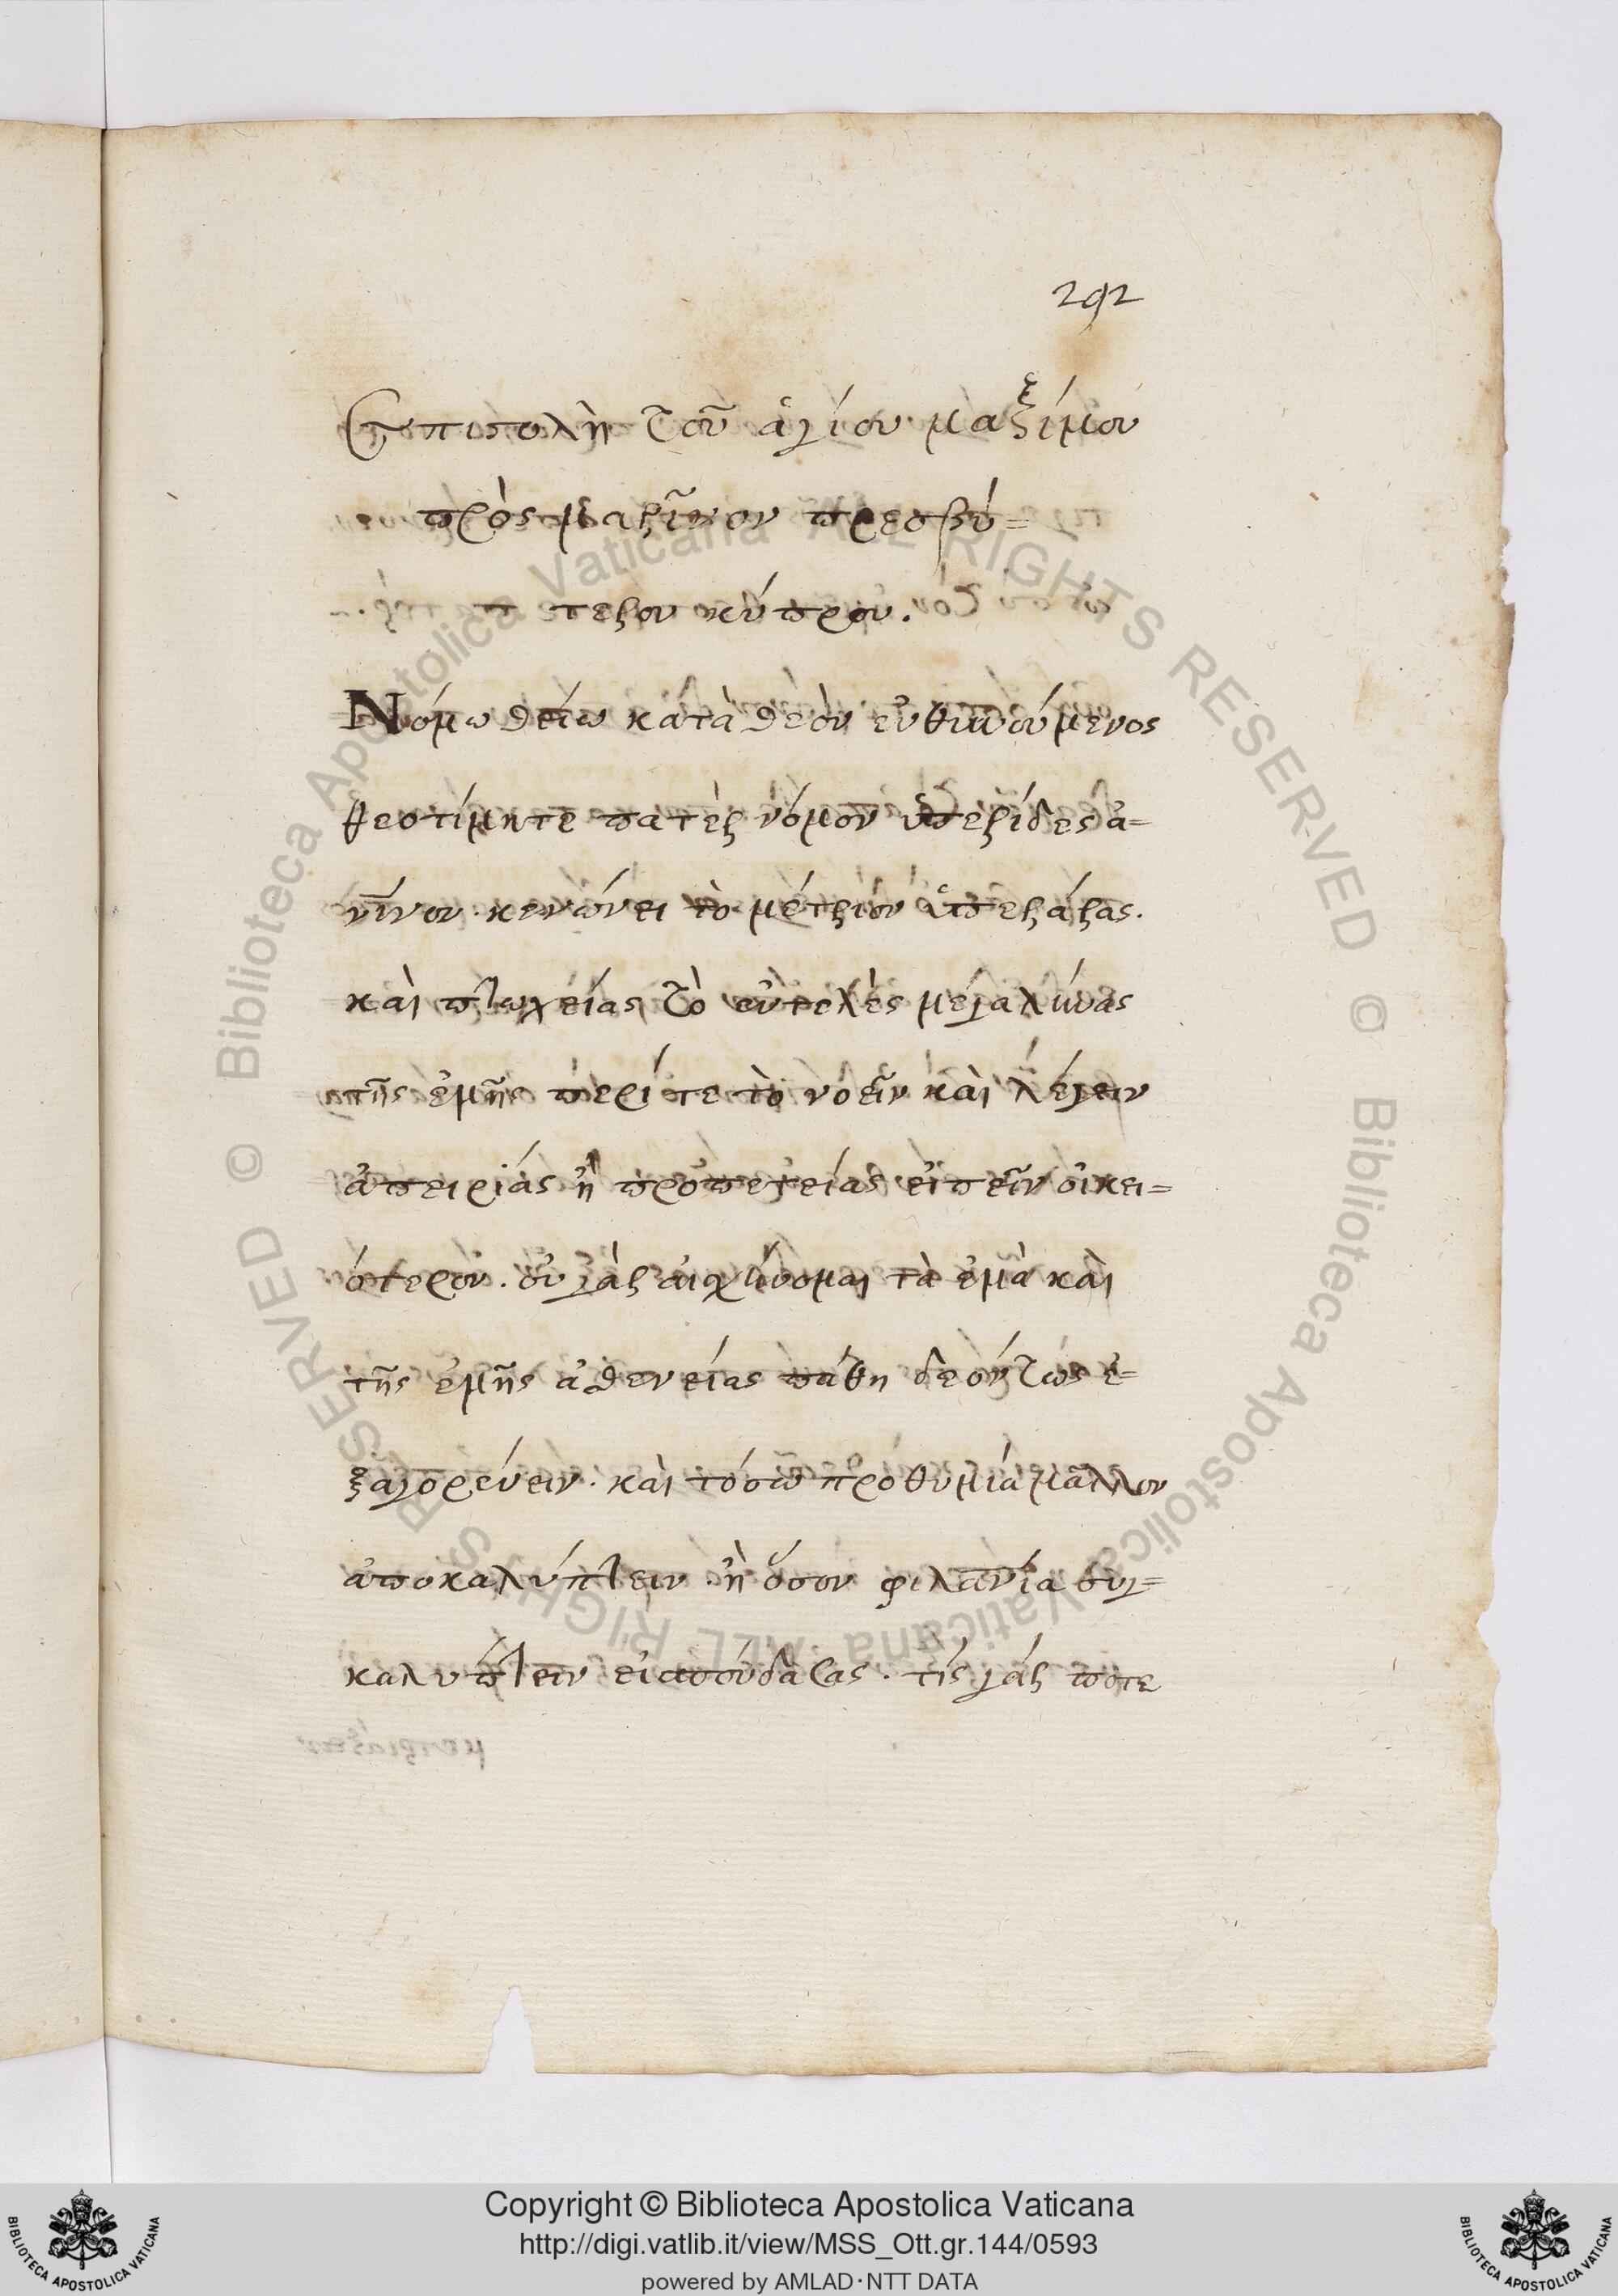 292
Ἐπιστολὴ τοῦ ἁγίου μαξίμου
πρὸς μαρῖνον πρεσβύ=
τερον κύπρου.
Νόμω θείω κατὰ θεὸν εὐθυνούμενος
θεοτίμητε πατὲρ νόμον ὑπερίδες ἀ=
νῖνον. κενώνει τὸ μέτριον ὑπεράρας.
καὶ πτωχείας τὸ εὐτελὲς μεγαλύνας
τῆς ἐμῆς περί τε τὸ νοεῖν καὶ λέγειν
ἀπειρίας ἢ προπετείας εἰπεῖν οἰκει=
ότερον. οὐ γὰρ αἰσχύνομαι τὰ ἐμὰ καὶ
τῆς ἐμῆς ἀσθενείας πάθη δεόντως ἐ=
ξαγορεύειν. καὶ τόσω προθυμία μᾶλλον
ἀποκαλύπτειν. ἢ ὅσον φιλαυτία συγ=
καλύπτειν εἰ σπούδασας. τίς γάρ ποτε
Copyright © Biblioteca Apostolica Vaticana
http://digi.vatlib.it/view/MSS_Ott.gr.144/0593
powered by AMLAD·NTT DATA
BIBLIOTECA APOSTOLICA VATICANA
BIBLIOTECA APOSTOLICA VATICANA
© Biblioteca Apostolica Vaticana ALL RIGHTS RESERVED © Biblioteca Apostolica Vaticana ALL RIGHTS RESERVED